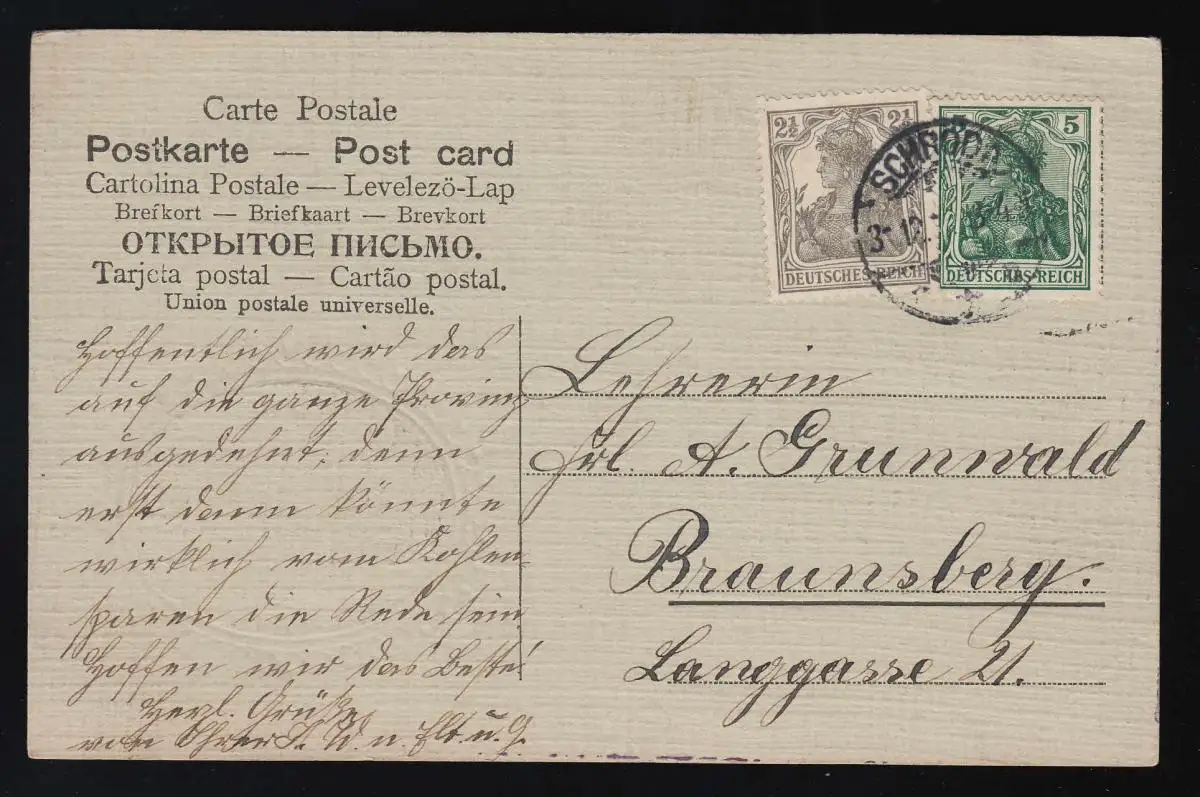 Carte Postale
Postkarte — Post card
Cartolina Postale — Levelezö-Lap
Brefkort — Briefkaart — Brevkort
ОТКРЫТОЕ ПИСЬМО.
Tarjeta postal — Cartão postal.
Union postale universelle.
2½ 2½
DEUTSCHES REICH
5
DEUTSCHES REICH
SCHRODD
3 12
Hoffentlich wird das
auf die ganze Provinz
ausgedehnt, denn
erst dann könnte
wirklich vom Kohlen-
sparen die Rede sein
Hoffen wir das Beste!
Herzl. Grüße
von Ihrer
Lehrerin
Frl. A. Grunwald
Braunsberg.
Langgasse 21.